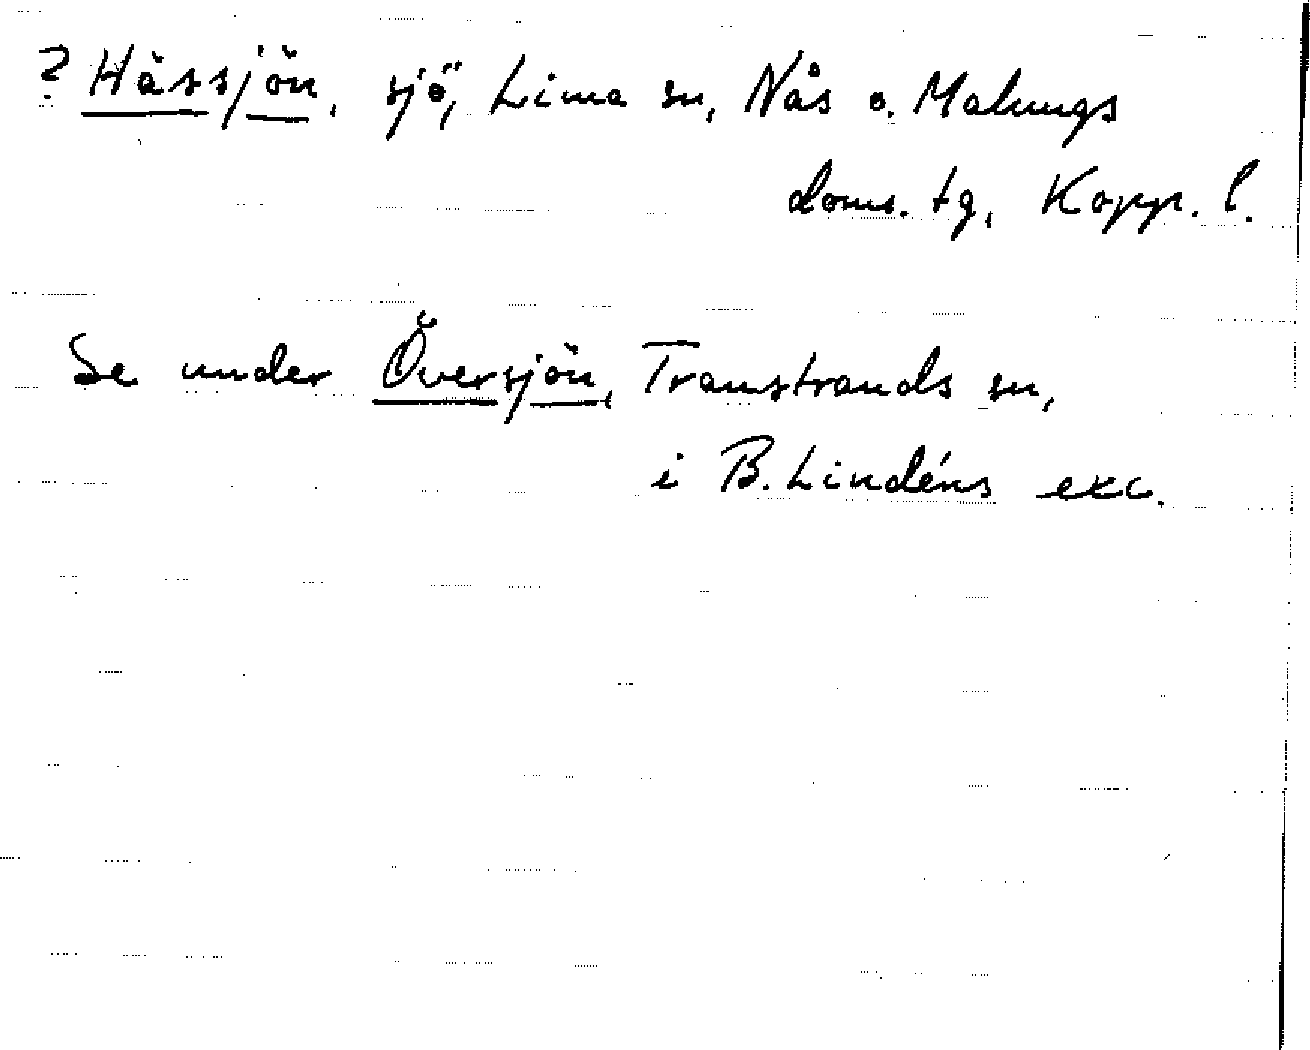 ? Hässjön, sjö, Lima sn, Nås o. Malungs
doms. tg, Kopp. l.
Se under Översjön, Transtrands sn,
i B. Lindéns exc.